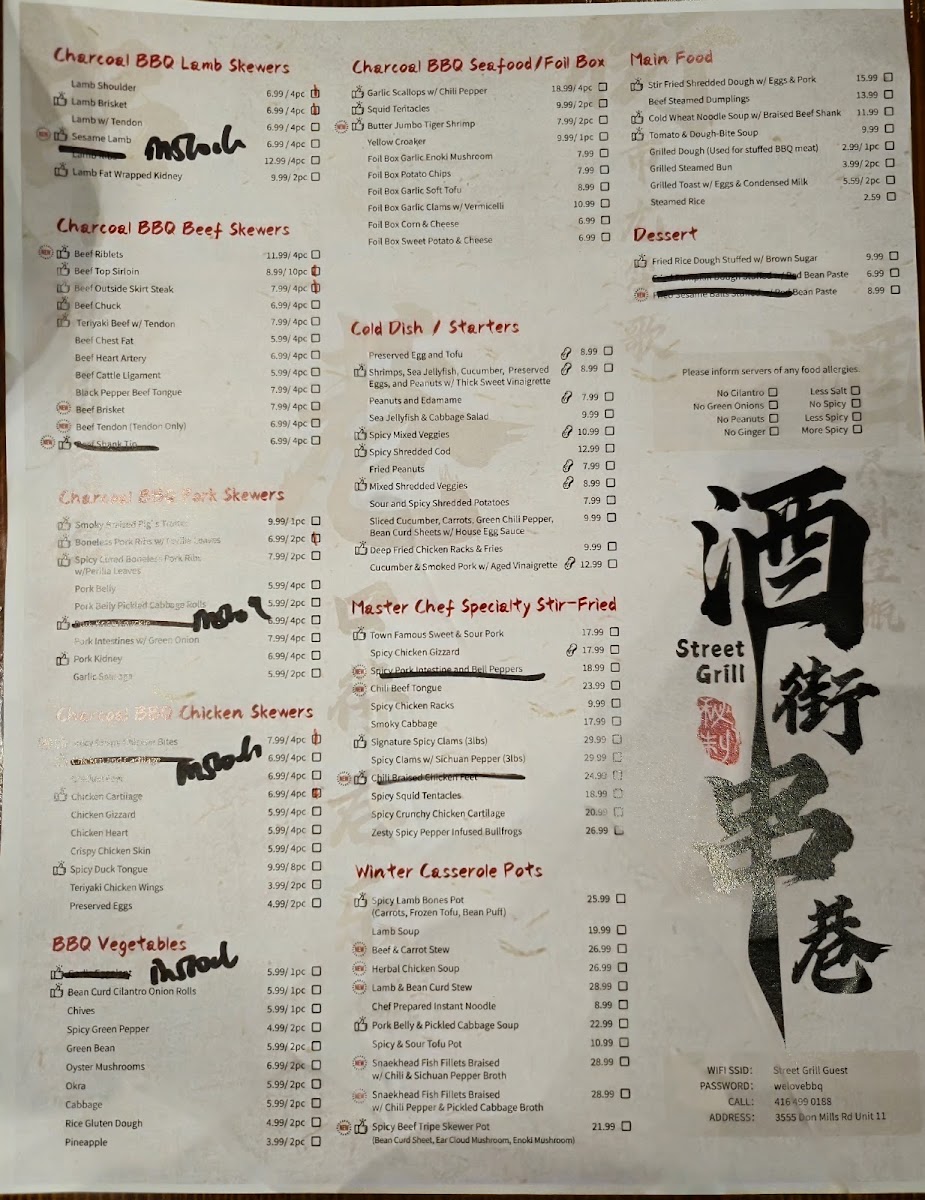 Charcoal BBQ Lamb Skewers
Lamb Shoulder 6.99/4pc
Lamb Brisket 6.99/4pc
Lamb w/ Tendon 6.99/4pc
NEW Sesame Lamb 6.99/4pc
instock
12.99/4pc
Lamb Fat Wrapped Kidney 9.99/2pc
Charcoal BBQ Beef Skewers
NEW Beef Riblets 11.99/4pc
Beef Top Sirloin 8.99/10pc
Beef Outside Skirt Steak 7.99/4pc
Beef Chuck 6.99/4pc
Teriyaki Beef w/ Tendon 7.99/4pc
Beef Chest Fat 5.99/4pc
Beef Heart Artery 6.99/4pc
Beef Cattle Ligament 5.99/4pc
Black Pepper Beef Tongue 7.99/4pc
NEW Beef Brisket 7.99/4pc
NEW Beef Tendon (Tendon Only) 6.99/4pc
NEW Beef Shank Tip 6.99/4pc
Charcoal BBQ Pork Skewers
Smoky Braised Pig's 9.99/1pc
Boneless Pork Ribs w/ Perilla Leaves 6.99/2pc
Spicy Cured Boneless Pork Ribs 7.99/2pc
w/Perilla Leaves
Pork Belly 5.99/4pc
Pork Belly Pickled Cabbage Rolls 5.99/2pc
6.99/4pc
Pork Intestines w/ Green Onion 7.99/4pc
Pork Kidney 6.99/4pc
Garlic Sausage 5.99/2pc
Charcoal BBQ Chicken Skewers
Bites 7.99/4pc
Cartilage 6.99/4pc
instock
6.99/4pc
Chicken Cartilage 6.99/4pc
Chicken Gizzard 5.99/4pc
Chicken Heart 5.99/4pc
Crispy Chicken Skin 5.99/4pc
Spicy Duck Tongue 9.99/8pc
Teriyaki Chicken Wings 3.99/2pc
Preserved Eggs 4.99/2pc
BBQ Vegetables
instock
5.99/1pc
Bean Curd Cilantro Onion Rolls 5.99/1pc
Chives 5.99/1pc
Spicy Green Pepper 4.99/2pc
Green Bean 5.99/2pc
Oyster Mushrooms 6.99/2pc
Okra 5.99/2pc
Cabbage 5.99/2pc
Rice Gluten Dough 4.99/2pc
Pineapple 3.99/2pc
Charcoal BBQ Seafood/Foil Box
Garlic Scallops w/ Chili Pepper 18.99/4pc
Squid Tentacles 9.99/2pc
NEW Butter Jumbo Tiger Shrimp 7.99/2pc
Yellow Croaker 9.99/1pc
Foil Box Garlic Enoki Mushroom 7.99
Foil Box Potato Chips 7.99
Foil Box Garlic Soft Tofu 8.99
Foil Box Garlic Clams w/ Vermicelli 10.99
Foil Box Corn & Cheese 6.99
Foil Box Sweet Potato & Cheese 6.99
Cold Dish / Starters
Preserved Egg and Tofu 8.99
Shrimps, Sea Jellyfish, Cucumber, Preserved 8.99
Eggs, and Peanuts w/ Thick Sweet Vinaigrette
Peanuts and Edamame 7.99
Sea Jellyfish & Cabbage Salad 9.99
Spicy Mixed Veggies 10.99
Spicy Shredded Cod 12.99
Fried Peanuts 7.99
Mixed Shredded Veggies 8.99
Sour and Spicy Shredded Potatoes 7.99
Sliced Cucumber, Carrots, Green Chili Pepper, 9.99
Bean Curd Sheets w/ House Egg Sauce
Deep Fried Chicken Racks & Fries 9.99
Cucumber & Smoked Pork w/ Aged Vinaigrette 12.99
Master Chef Specialty Stir-Fried
Town Famous Sweet & Sour Pork 17.99
Spicy Chicken Gizzard 17.99
NEW Spicy Pork Intestine and Bell Peppers 18.99
NEW Chili Beef Tongue 23.99
Spicy Chicken Racks 9.99
Smoky Cabbage 17.99
Signature Spicy Clams (3lbs) 29.99
Spicy Clams w/ Sichuan Pepper (3lbs) 29.99
NEW Chili Braised Chicken Feet 24.99
Spicy Squid Tentacles 18.99
Spicy Crunchy Chicken Cartilage 20.99
Zesty Spicy Pepper Infused Bullfrogs 26.99
Winter Casserole Pots
Spicy Lamb Bones Pot 25.99
(Carrots, Frozen Tofu, Bean Puff)
Lamb Soup 19.99
NEW Beef & Carrot Stew 26.99
NEW Herbal Chicken Soup 26.99
NEW Lamb & Bean Curd Stew 28.99
Chef Prepared Instant Noodle 8.99
Pork Belly & Pickled Cabbage Soup 22.99
Spicy & Sour Tofu Pot 10.99
NEW Snaekhead Fish Fillets Braised 28.99
w/ Chili & Sichuan Pepper Broth
NEW Snaekhead Fish Fillets Braised 28.99
w/ Chili Pepper & Pickled Cabbage Broth
NEW Spicy Beef Tripe Skewer Pot 21.99
(Bean Curd Sheet, Ear Cloud Mushroom, Enoki Mushroom)
Main Food
Stir Fried Shredded Dough w/ Eggs & Pork 15.99
Beef Steamed Dumplings 13.99
Cold Wheat Noodle Soup w/ Braised Beef Shank 11.99
Tomato & Dough-Bite Soup 9.99
Grilled Dough (Used for stuffed BBQ meat) 2.99/1pc
Grilled Steamed Bun 3.99/2pc
Grilled Toast w/ Eggs & Condensed Milk 5.59/2pc
Steamed Rice 2.59
Dessert
Fried Rice Dough Stuffed w/ Brown Sugar 9.99
Fried Pumpkin Dough Stuffed w/ Red Bean Paste 6.99
NEW Fried Sesame Balls Stuffed w/ Red Bean Paste 8.99
Please inform servers of any food allergies.
No Cilantro Less Salt
No Green Onions No Spicy
No Peanuts Less Spicy
No Ginger More Spicy
酒街串巷
Street
Grill
WIFI SSID: Street Grill Guest
PASSWORD: welovebbq
CALL: 416 499 0188
ADDRESS: 3555 Don Mills Rd Unit 11